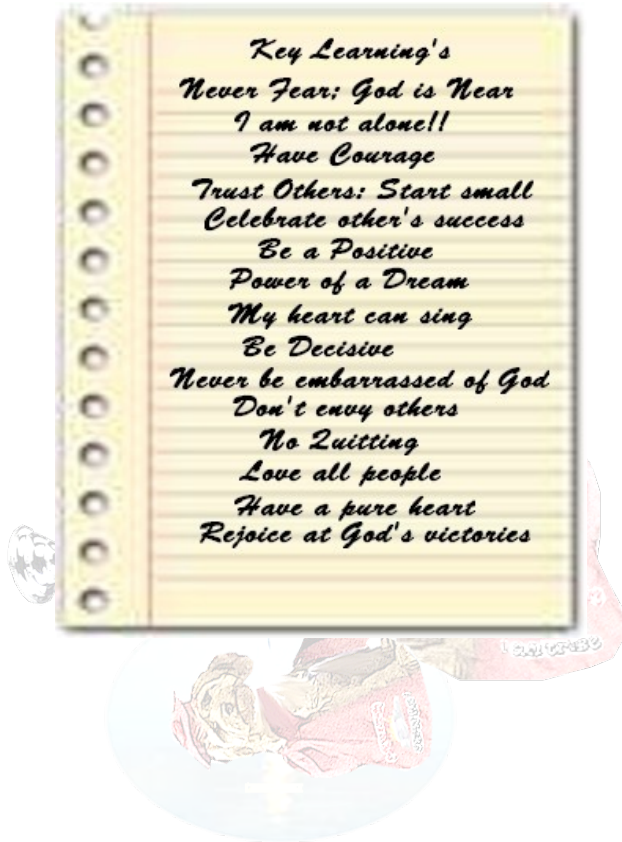 Key Learning's
Never Fear; God is Near
I am not alone!!
Have Courage
Trust Others: Start small
Celebrate other's success
Be a Positive
Power of a Dream
My heart can sing
Be Decisive
Never be embarrassed of God
Don't envy others
No Quitting
Love all people
Have a pure heart
Rejoice at God's victories